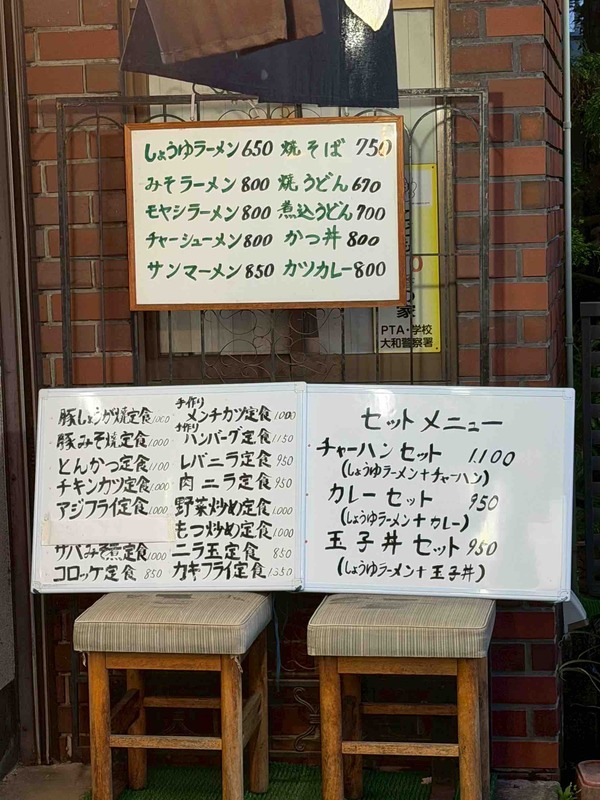 しょうゆラーメン 650 焼そば 750
みそラーメン 800 焼うどん 670
モヤシラーメン 800 煮込うどん 700
チャーシューメン 800 かつ丼 800
サンマーメン 850 カツカレー 800
の家
PTA・学校
大和警察署
豚しょうが焼定食 1000
豚みそ焼定食 1000
とんかつ定食 1100
チキンカツ定食 1000
アジフライ定食 1000
サバみそ煮定食 1000
コロッケ定食 850
手作り
メンチカツ定食 1000
手作り
ハンバーグ定食 1150
レバニラ定食 950
肉ニラ定食 950
野菜炒め定食 1000
もつ炒め定食 1000
ニラ玉定食 850
カキフライ定食 1350
セットメニュー
チャーハンセット 1.100
(しょうゆラーメン+チャーハン)
カレーセット 950
(しょうゆラーメン+カレー)
玉子丼セット 950
(しょうゆラーメン+玉子丼)